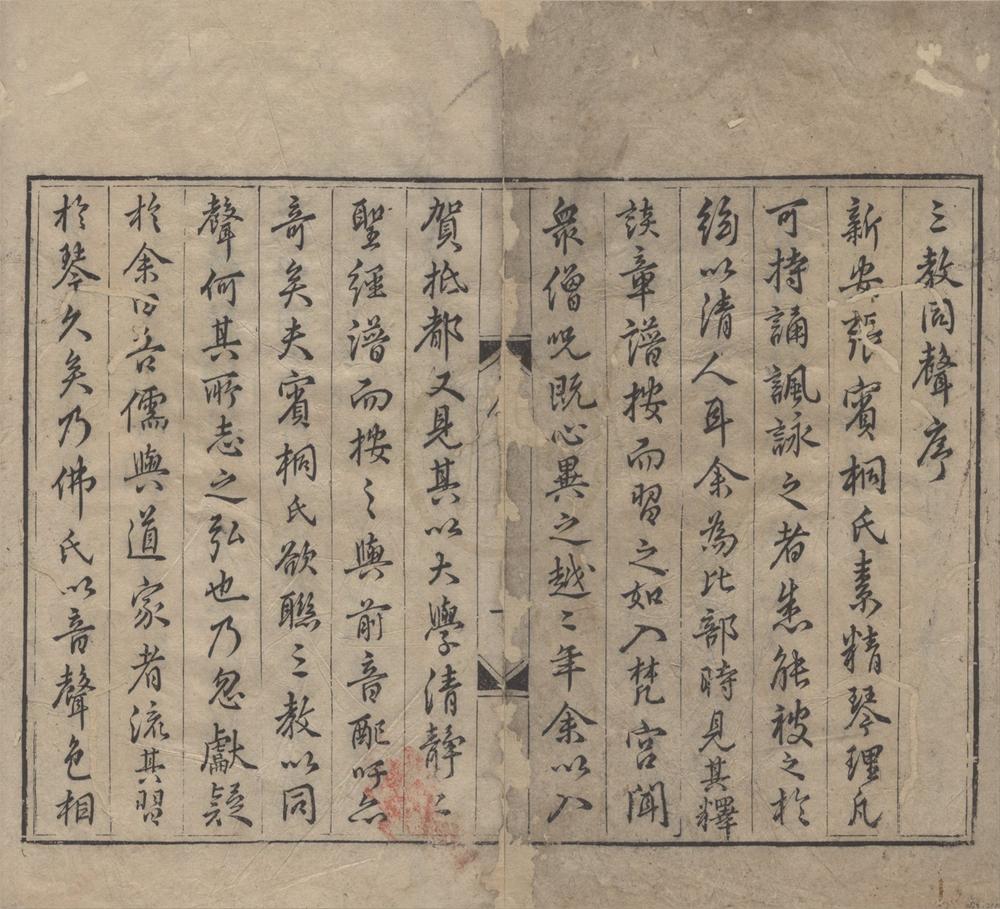 三教同聲序
新安張賓桐氏素精琴理凡
可持誦諷詠之者悉能被之於
絲以清人耳余為比部時見其釋
談章譜按而習之如入梵宮聞
眾僧咒既心異之越二年余以入
賀抵都又見其以大學清靜二
聖經譜而按之與前音配吁亦
奇矣夫賓桐氏欲聯三教以同
聲何其所志之弘也乃忽獻疑
於余曰吾儒與道家者流其習
於琴久矣乃佛氏以音聲色相